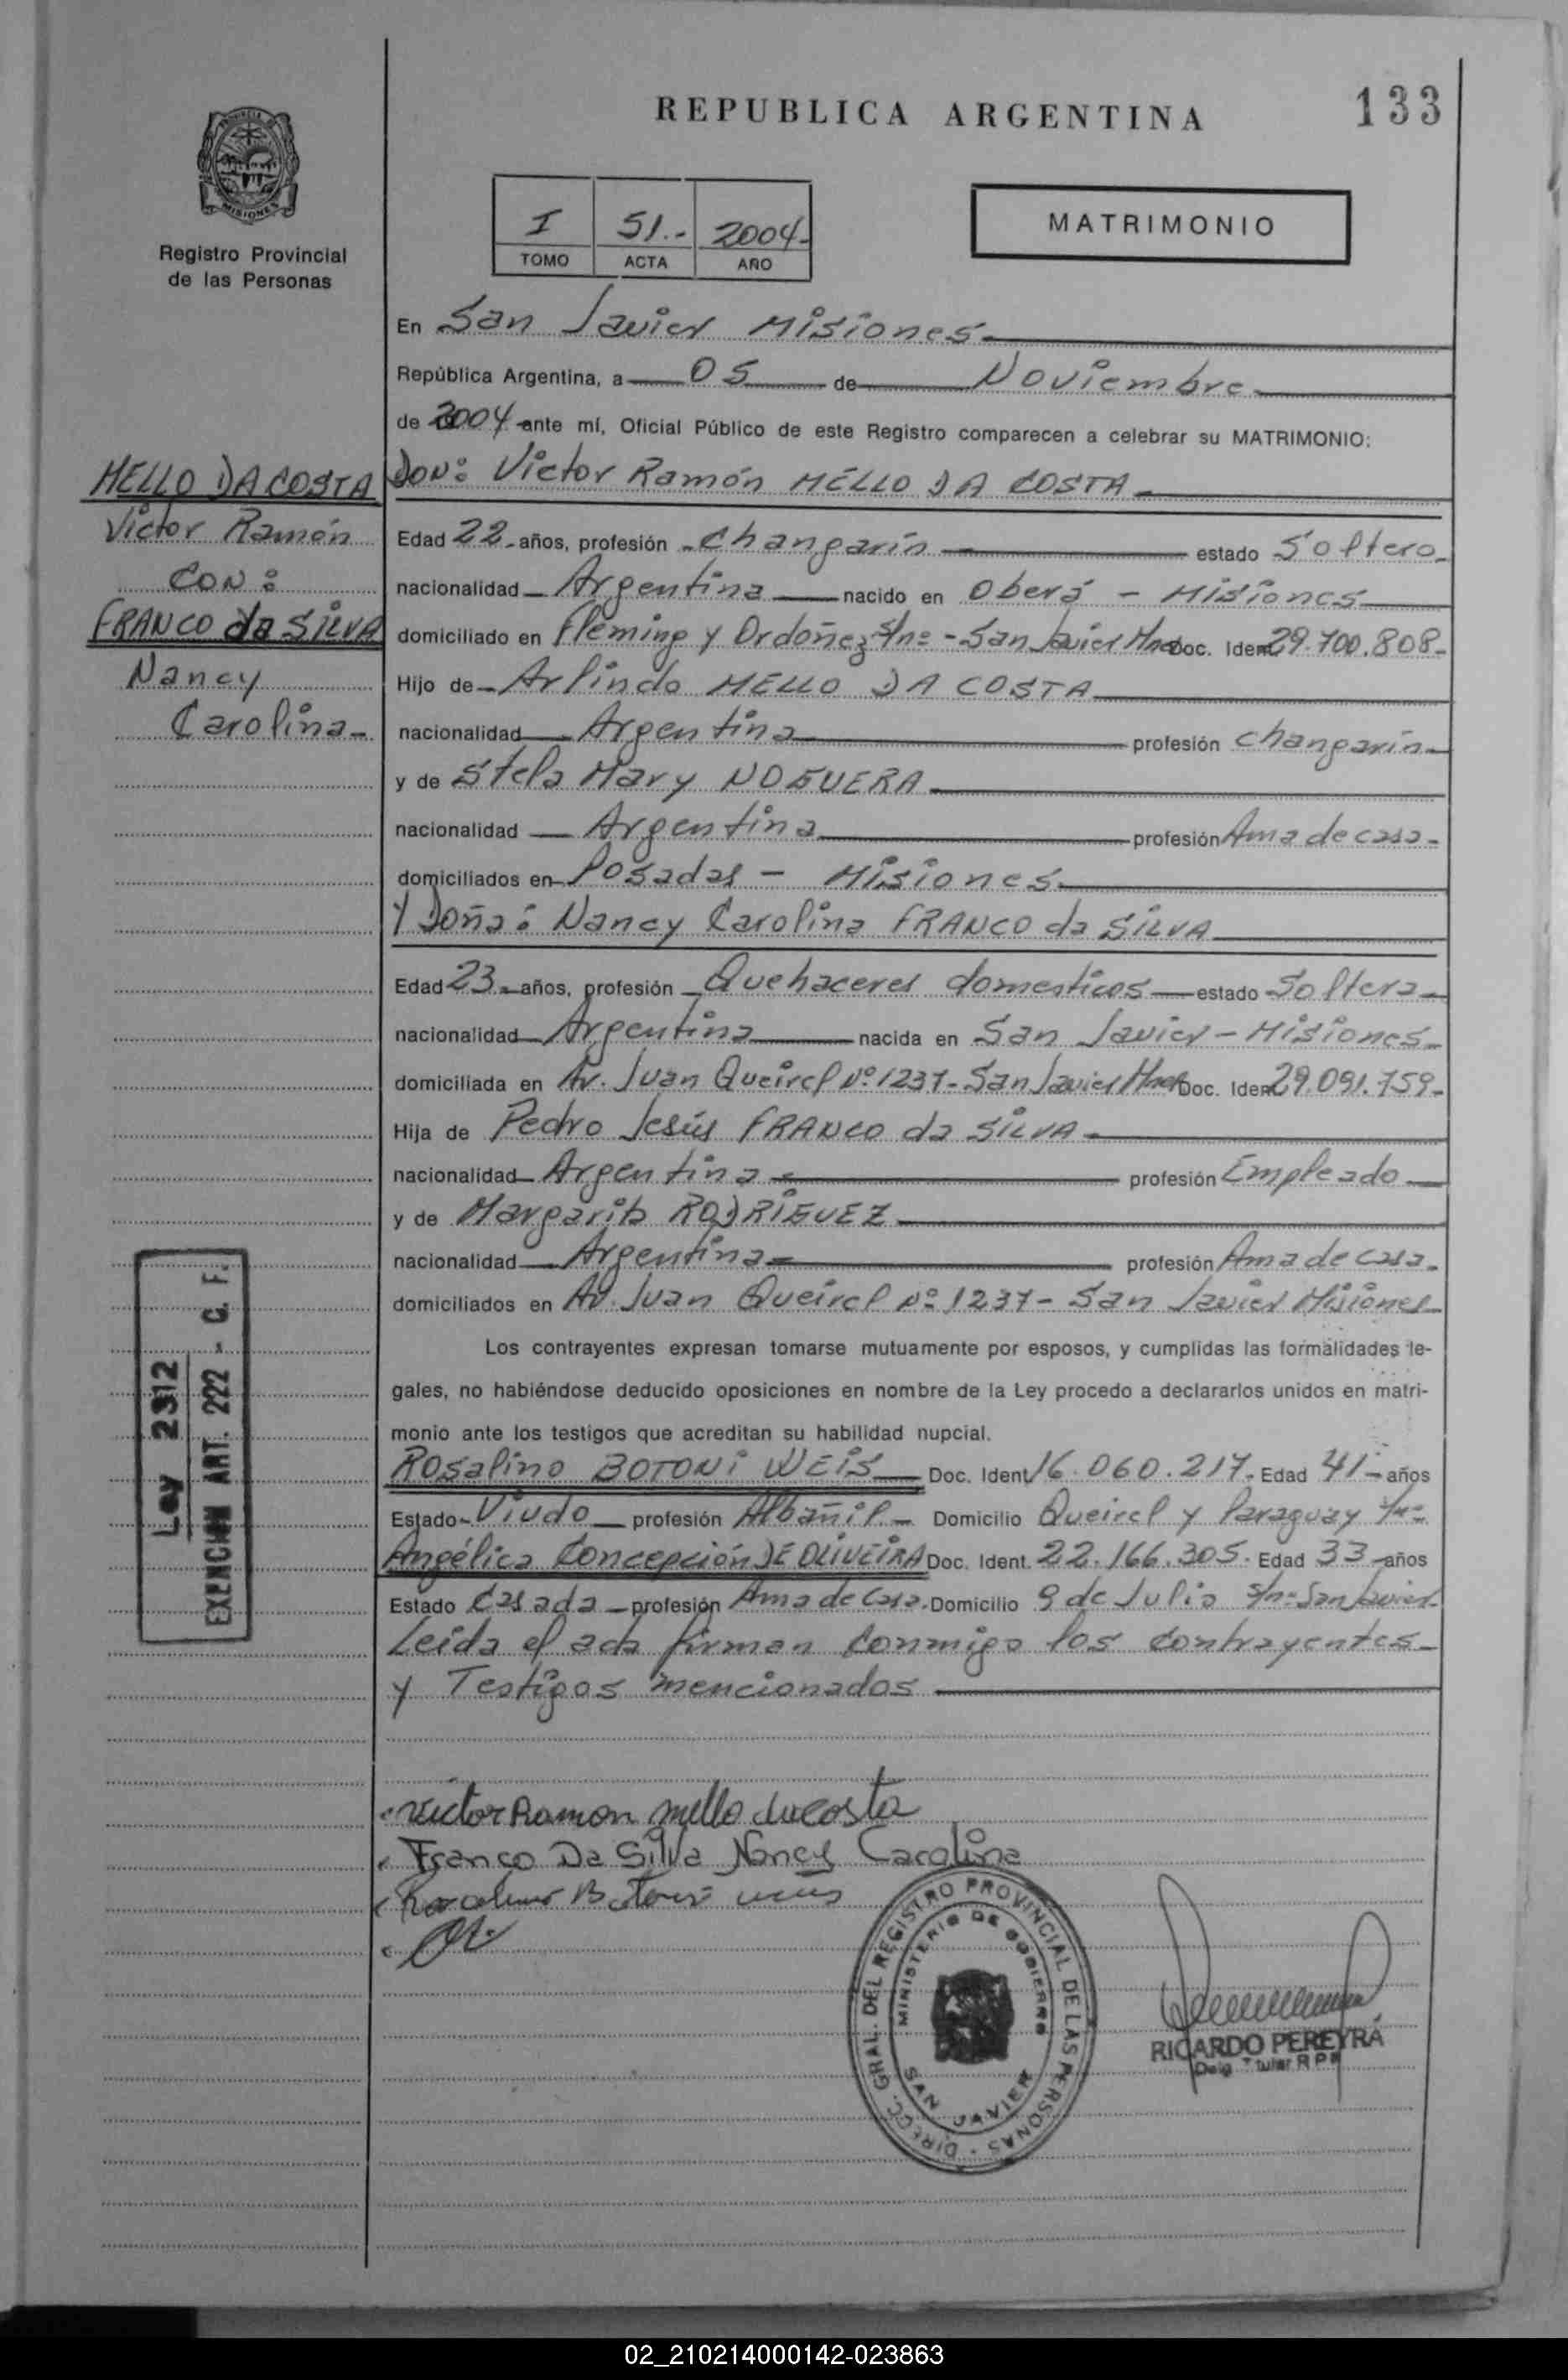 REPUBLICA ARGENTINA
133
PROVINCIA DE
MISIONES
Registro Provincial
de las Personas
I 51.- 2004-
TOMO ACTA AÑO
MATRIMONIO
En San Javier Misiones
República Argentina, a 05 de Noviembre
de 2004 ante mí, Oficial Público de este Registro comparecen a celebrar su MATRIMONIO:
MELLO DA COSTA
Victor Ramón
CON:
FRANCO da SILVA
Nancy
Carolina-
DON: Victor Ramón MELLO DA COSTA
Edad 22 años, profesión changarín estado Soltero
nacionalidad Argentina nacido en Oberá - Misiones
domiciliado en Fleming y Ordoñez s/nº - San Javier Mnes Doc. Ident 29.700.808-
Hijo de Arlindo MELLO DA COSTA
nacionalidad Argentina profesión changarín
y de Stela Mary NOGUERA
nacionalidad Argentina profesión Ama de casa-
domiciliados en Posadas - Misiones
Y Doña: Nancy Carolina FRANCO da SILVA
Edad 23 años, profesión Quehaceres domesticos estado Soltera
nacionalidad Argentina nacida en San Javier - Misiones
domiciliada en Av. Juan Queirel Nº 1237- San Javier Mnes Doc. Ident 29.091.759-
Hija de Pedro Jesús FRANCO da SILVA
nacionalidad Argentina profesión Empleado
y de Margarita RODRIGUEZ
nacionalidad Argentina profesión Ama de casa.
domiciliados en Av. Juan Queirel Nº 1237- San Javier Misiones
Los contrayentes expresan tomarse mutuamente por esposos, y cumplidas las formalidades le-
gales, no habiéndose deducido oposiciones en nombre de la Ley procedo a declararlos unidos en matri-
monio ante los testigos que acreditan su habilidad nupcial.
Rosalino BOTONI WEIS Doc. Ident 16.060.217. Edad 41 años
Estado Viudo profesión Albañil Domicilio Queirel y Paraguay s/nº
Angélica Concepción DE OLIVEIRA Doc. Ident. 22.166.305. Edad 33 años
Estado Casada profesión Ama de Casa. Domicilio 9 de Julio s/nº San Javier
Leida el acta firman conmigo los contrayentes
y Testigos mencionados
Ley 2312
EXENCION ART. 222 - C. F.
Victor Ramon mello dacosta
Franco Da Silva Nancy Carolina
DIRECC. GRAL. DEL REGISTRO PROVINCIAL DE LAS PERSONAS
MINISTERIO DE GOBIERNO
SAN JAVIER
RICARDO PEREYRA
Deleg. Titular R P P
02_210214000142-023863